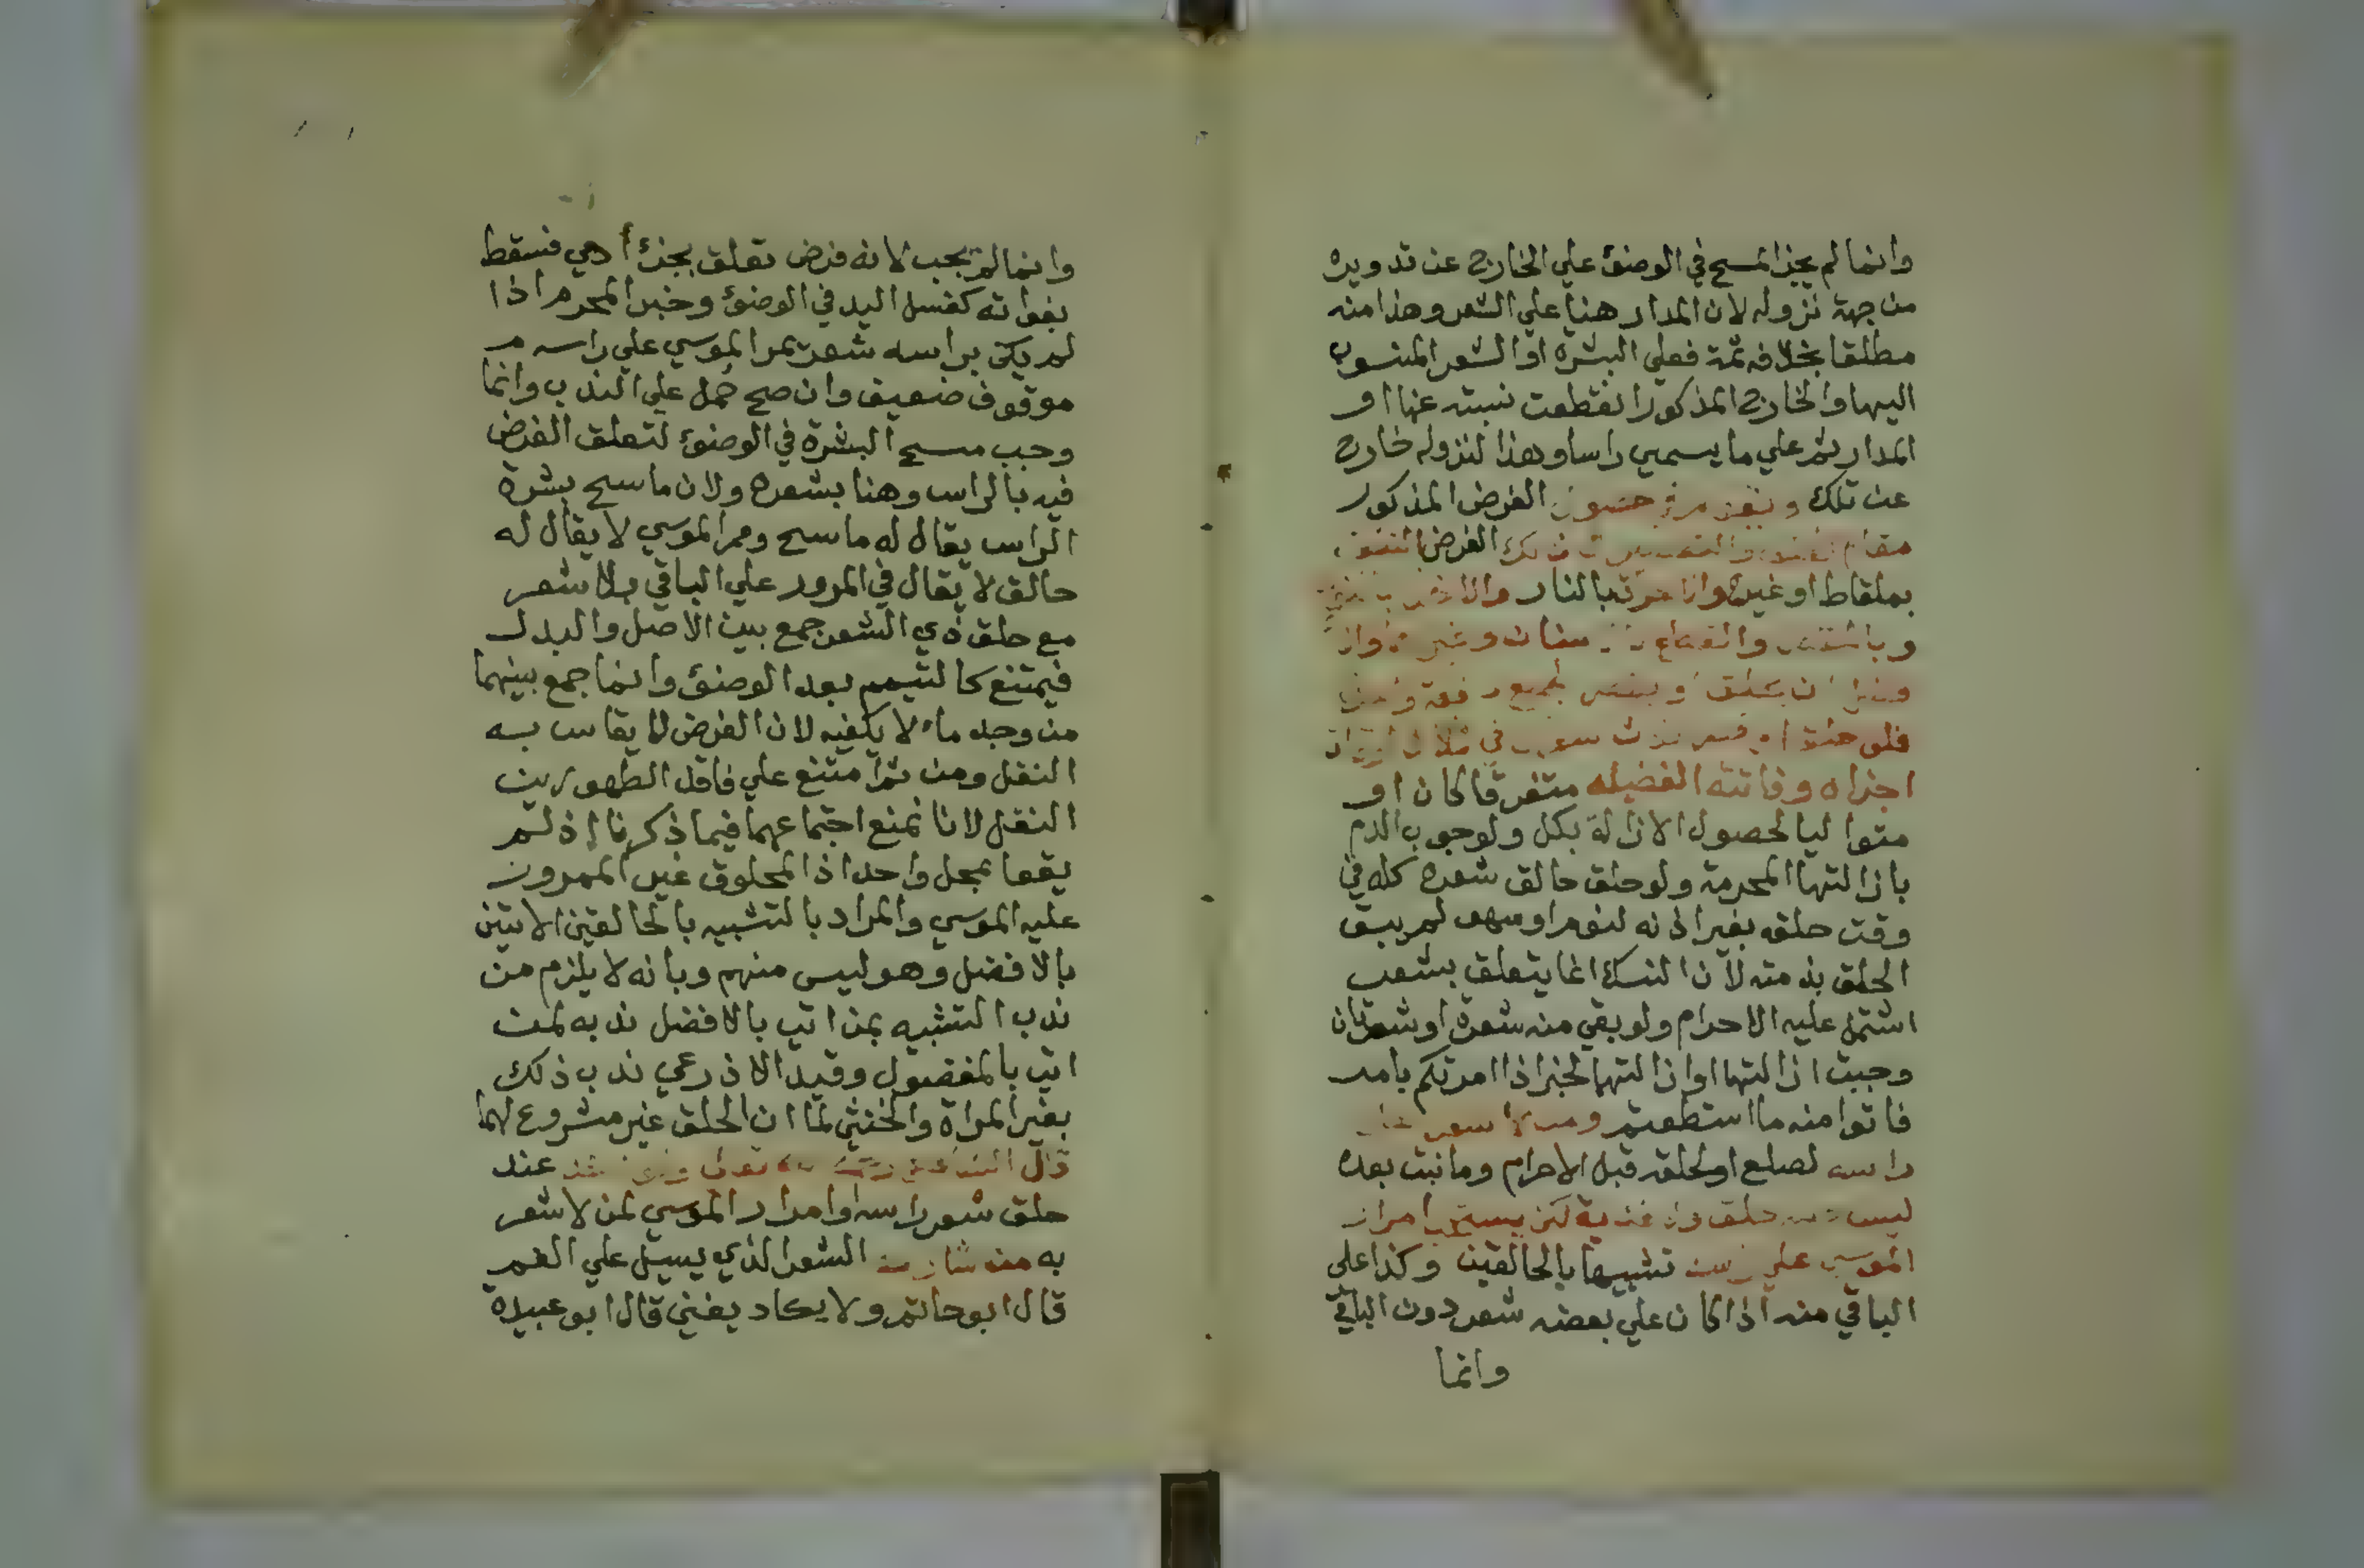 وانما لم يجز المسح في الوضوء علي الخارج عن تدويره
من جهة نزوله لان المدار هنا علي الشعر وهذا منه
مطلقا بخلافه ثمة فعلي البشرة او الشعر المنسوب
اليها والخارج المذكور انقطعت نسبته عنها او
المدار ثم علي ما يسمي راسا وهذا لنزوله خارج
عن تلك ويقوم في حصول الفرض المذكور
مقام والتقصير ذلك الفرض النتف
بملقاط او غيره والاحراق بالنار والاخذ
و والقطع بالاسنان وغيرها
ان يحلق او يقصر الجميع دفعة واحدة
فلو حلق او قصر ثلاث شعرات في ثلاث اوقات
اجزاه وفاتته الفضيله متفرقا كان او
متواليا لحصول الازالة بكل ولوجوب الدم
بازالتها المحرمة ولو حلق حالق شعره كله في
وقت حلقه بغير اذنه لنوم او سهو لم يبق
الحلق بذمته لان النسك انما يتعلق بشعر
اشتمل عليه الاحرام ولو بقي منه شعرة او شعرتان
وجبت ازالتها او ازالتهما لخبر اذا امرتكم بامر
فاتوا منه ما استطعتم ومن لا شعر علي
راسه لصلع او لحلقه قبل الاحرام وما نبت بعده
ليس حلق ولا فدية لكن يستحب امرار
الموسي علي راسه تشبيها بالحالقين وكذا علي
الباقي منه اذا كان علي بعضه شعر دون الباقي
وانما
وانما لم يجب لانه فرض تعلق بجزء ادمي فسقط
بفواته كغسل اليد في الوضوء وخبر المحرم اذا
لم يكن براسه شعر يمر الموسي علي راسه
موقوف ضعيف وان صح حمل علي الندب وانما
وجب مسح البشرة في الوضوء لتعلق الفرض
فيه بالراس وهنا بشعره ولان ماسح بشرة
الراس يقال له ماسح وممر الموسي لا يقال له
حالق لا يقال في المرور علي الباقي بلا شعر
مع حلق ذي الشعر جمع بين الاصل والبدل
فيمتنع كالتيمم بعد الوضوء وانما جمع بينهما
من وجد ماء لا يكفيه لان الفرض لا يقاس به
النفل ومن ثم امتنع علي فاقد الطهورين
النفل لانا نمنع اجتماعهما فيما ذكرنا اذ لم
يقعا بمحل واحد اذ المحلوق غير الممرور
عليه الموسي والمراد بالتشبيه بالحالقين الاتين
بالافضل وهو ليس منهم وبانه لا يلزم من
ندب التشبيه بمن اتي بالافضل ندبه لمن
اتي بالمفضول وقيد الاذرعي ندب ذلك
بغير المراة والخنثي لما ان الحلق غير مشروع لهما
قال الشافعي تعالي عند
حلق شعر راسه او امرار الموسي لمن لا شعر
به من شاربه الشعر الذي يسيل علي الفم
قال ابو حاتم ولا يكاد يغني قال ابو عبيدة